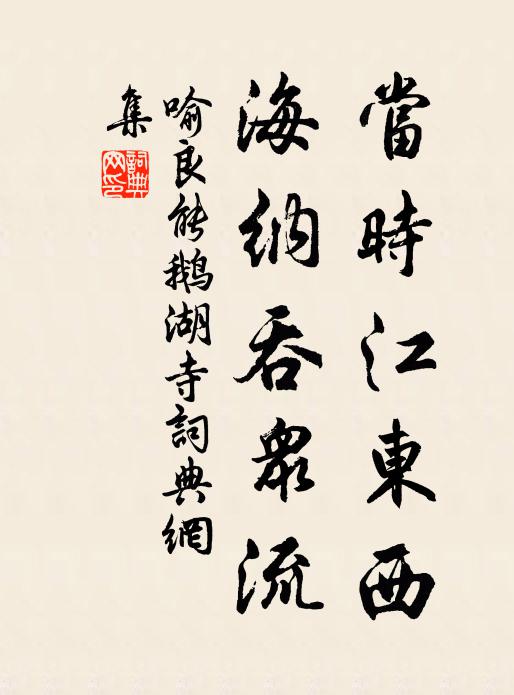 當時江東西
海納吞眾流
喻良能鵝湖寺詞典網
集
詞典
网印